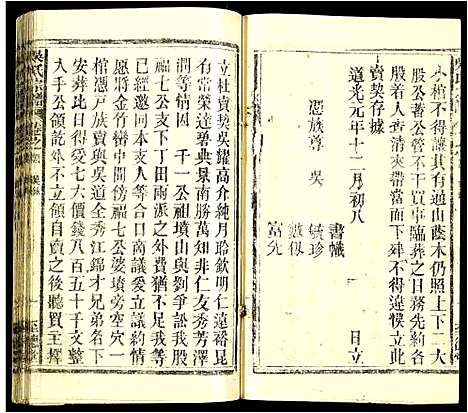 大椿不得讓其有過山蔭木仍照上下二大
股公蓄公管不干買事臨葬之日務先約各
股着人眷清夾帶當面下𦵏不得違悞立此
賣契存據
道光元年十二月初八日立
憑族尊吳
書幟
毓珍
敬似
富允
吳氏宗譜
立杜賣契吳耀高介純月聆欽明仁遠裕昆
有常榮達碧典景南勝萬知非仁友秀芳澤
潤等情因千一公祖墳山與劉爭訟我等股
七公支下丁田兩派之外費猶不足我等
已經邀同本支人等合日南議愛立議約情
愿將金竹巒中間七六公婆墳旁空穴一
棺憑戶族賣與吳道全秀江錦才兄弟名下
比時凴日得受七六大錢八百五十千文整
入手公領訖外不立領自賣之後聽買主擇